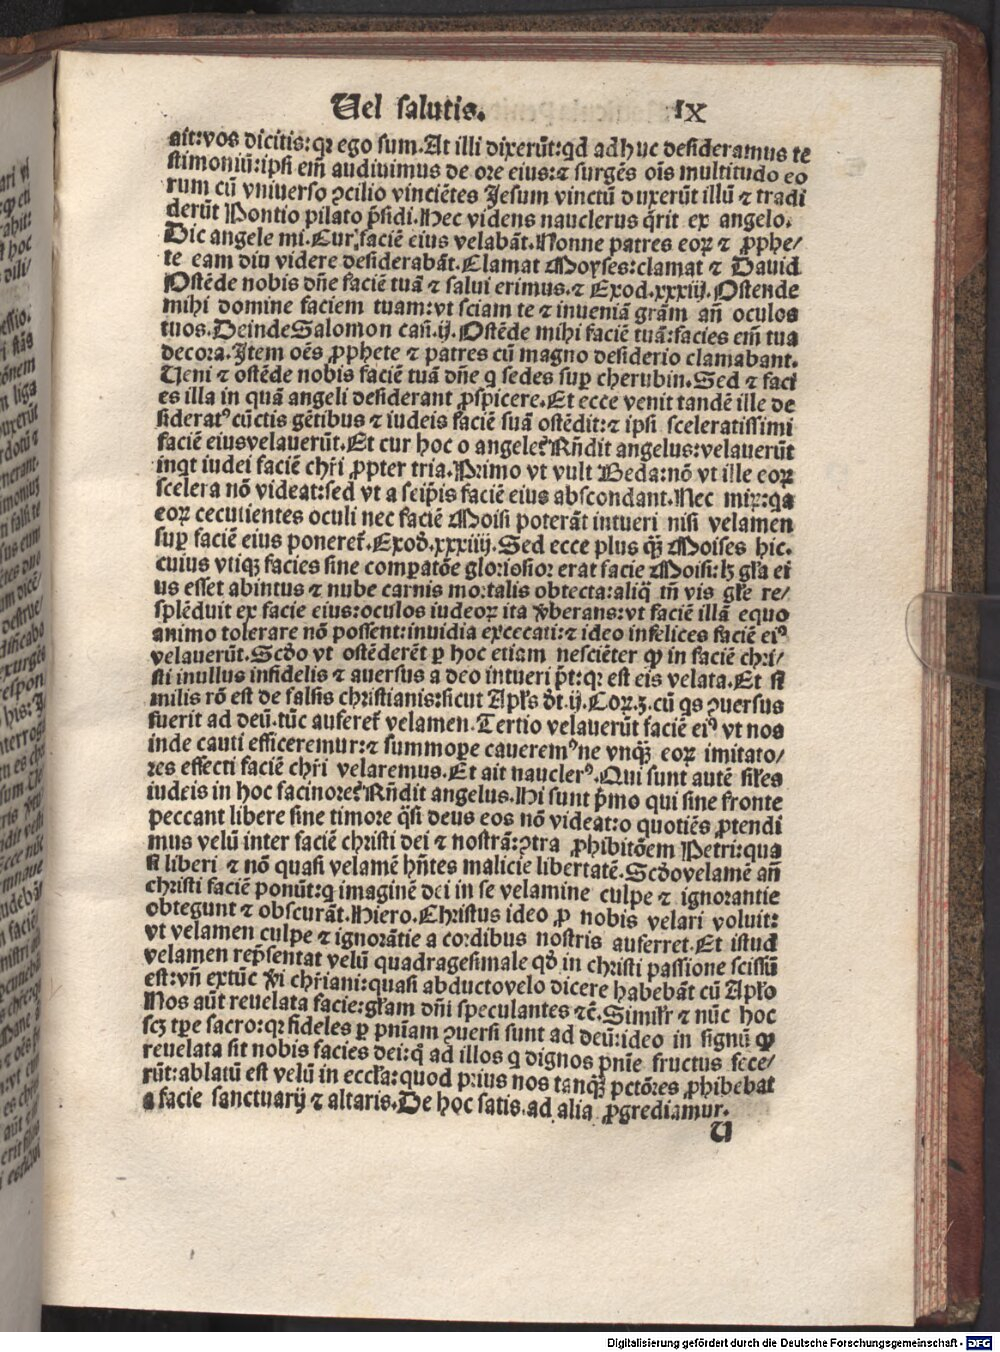 Uel salutis. IX
ait:vos dicitis:qꝛ ego sum. At illi dixerūt:qd adhuc desideramus te
stimoniū:ipsi em̄ audiuimus de ore eius:⁊ surgēs oīs multitudo eo
rum cū vniuerso ꝯcilio vinciētes Jesum vinctū duxerūt illū ⁊ tradi
derūt Pontio pilato p̄sidi. Hec videns nauclerus q̄rit ex angelo.
Dic angele mi. Cur faciē eius velabāt. Nonne patres eoꝝ ⁊ ꝓphe/
te eam diu videre desiderabāt. Clamat Moyses:clamat ⁊ Dauid
Ostēde nobis dn̄e faciē tuā ⁊ salui erimus. ⁊ Exod. xxxiij. Ostende
mihi domine faciem tuam:vt sciam te ⁊ inueniā grām an̄ oculos
tuos. Deinde Salomon can̄. ij. Ostēde mihi faciē tuā:facies em̄ tua
decora. Item oēs ꝓphete ⁊ patres cū magno desiderio clamabant.
Ueni ⁊ ostēde nobis faciē tuā dn̄e q sedes suꝑ cherubin. Sed ⁊ faci
es illa in quā angeli desiderant ꝓspicere. Et ecce venit tandē ille de
sideratꝰ cūctis gētibus ⁊ iudeis faciē suā ostēdit:⁊ ipsi sceleratissimi
faciē eiusvelauerūt. Et cur hoc o angele? Rn̄dit angelus:velauerūt
inqt iudei faciē chr̄i ꝓpter tria. Primo vt vult Beda:nō vt ille eoꝝ
scelera nō videat:sed vt a seip̄is faciē eius abscondant. Nec miꝝ:qa
eoꝝ cecutientes oculi nec faciē Moisi poterāt intueri nisi velamen
suꝑ faciē eius poneret̄. Exod̄. xxxiiij. Sed ecce plus qꝫ̄ Moises hic.
cuius vtiqꝫ facies sine comꝑatōe gloriosior erat facie Moisi:lꝫ gl̄a ei
us esset abintus ⁊ nube carnis mortalis obtecta:aliq̄ tn̄ vis gl̄e re/
splēduit ex facie eius:oculos iudeoꝝ ita v̄berans:vt faciē illā equo
animo tolerare nō possent:inuidia excecati:⁊ ideo infelices faciē eiꝰ
velauerūt. Scd̄o vt ostēderēt ꝑ hoc etiam nesciēter ꝙ in faciē chri/
sti inullus infidelis ⁊ auersus a deo intueri p̄t:qꝛ est eis velata. Et si
milis rō est de falsis christianis:sicut Apl̄s d̄t. ij. Coꝝ. ꝫ. cū qs ꝯuersus
fuerit ad deū. tūc auferet̄ velamen. Tertio velauerūt faciē eiꝰ vt nos
inde cauti efficeremur:⁊ summoꝑe caueremꝰ ne vnqꝫ̄ eoꝝ imitato/
res effecti faciē chr̄i velaremus. Et ait nauclerꝰ. Qui sunt autē sil̄es
iudeis in hoc facinore? Rn̄dit angelus. Hi sunt p̄mo qui sine fronte
peccant libere sine timore q̄si deus eos nō videat:o quotiēs ꝓtendi
mus velū inter faciē christi dei ⁊ nostrā:ꝯtra ꝓhibitōem Petri:qua
si liberi ⁊ nō quasi velamē hn̄tes malicie libertatē. Scd̄ovelamē an̄
christi faciē ponūt:q imaginē dei in se velamine culpe ⁊ ignorantie
obtegunt ⁊ obscurāt. Hiero. Christus ideo ꝓ nobis velari voluit:
vt velamen culpe ⁊ ignorātie a cordibus nostris auferret. Et istud
velamen rep̄sentat velū quadragesimale qd̄ in christi passione scissū
est:vn̄ extūc v̄i chr̄iani:quasi abductovelo dicere habebāt cū Apl̄o
Nos aūt reuelata facie:gl̄am dn̄i speculantes ⁊c̄. Simil̄r ⁊ nūc hoc
scꝫ tꝑe sacro:qꝛ fideles ꝑ pn̄iam ꝯuersi sunt ad deū:ideo in signū ꝙ
reuelata sit nobis facies dei:q̄ ad illos q dignos pn̄ie fructus fece/
rūt:ablatū est velū in eccl̄a:quod prius nos tanqꝫ̄ pctōres ꝓhibebat
a facie sanctuarij ⁊ altaris. De hoc satis. ad alia ꝓgrediamur.
U
Digitalisierung gefördert durch die Deutsche Forschungsgemeinschaft - DFG